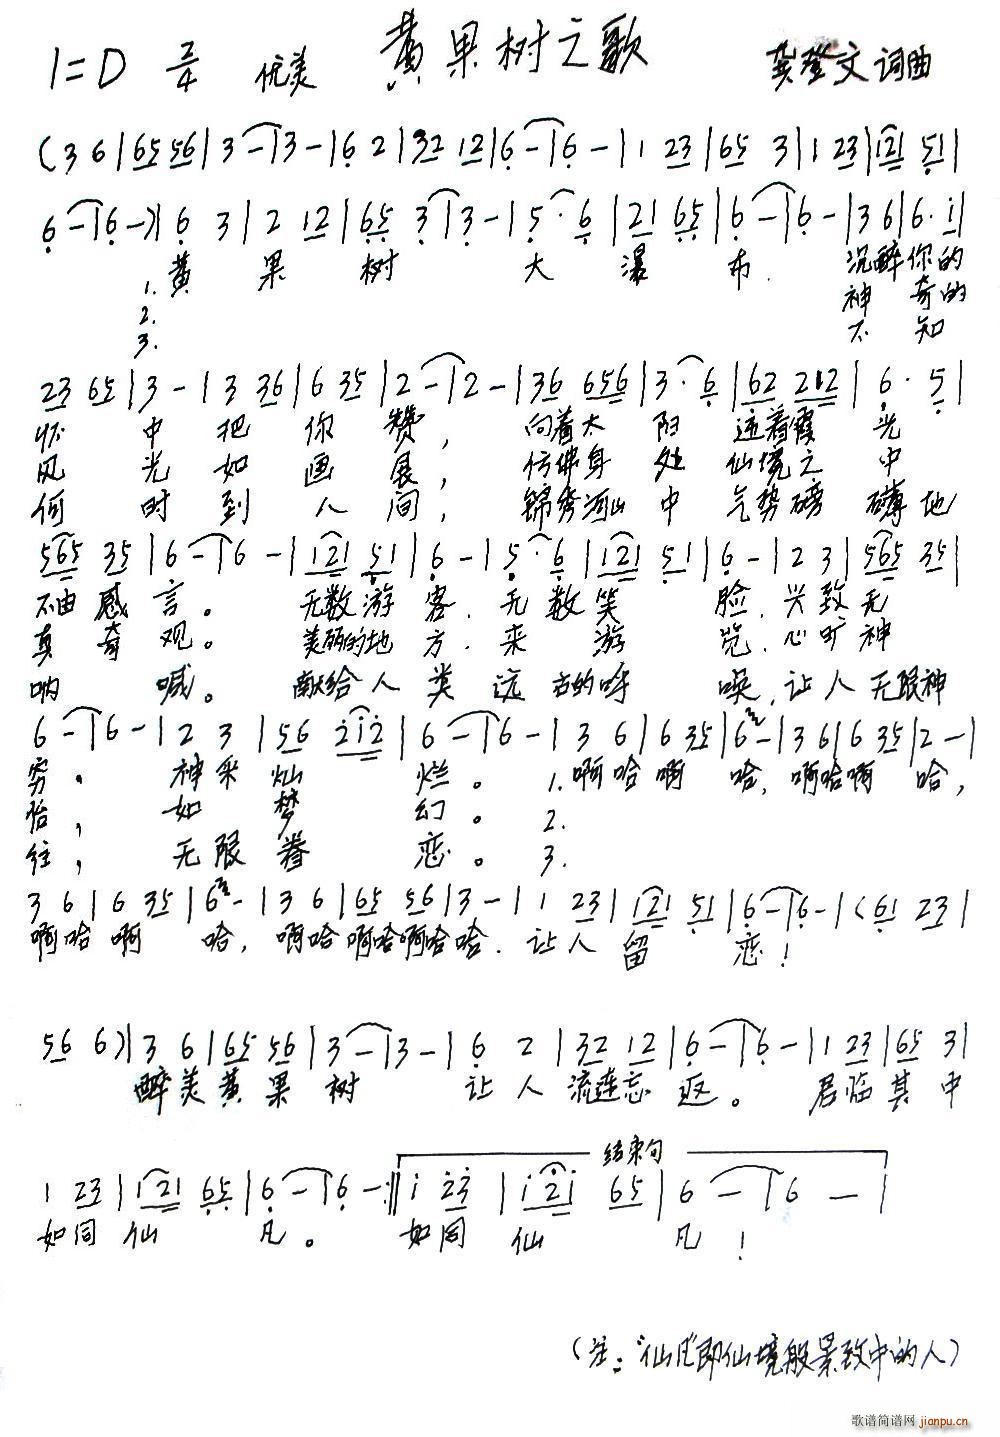 黄果树之歌
1=D 2/4 优美 龚登文 词曲
(3 6|65 56|3 -|3 -|6 2|32 12|6 -|6 -|1 23|65 3|1 23|121 51|
6 -|6 -)|6 3|2 12|65 3|3 -|5· 6|21 65|6 -|6 -|3 6|6· i|
1. 黄 果 树 大 瀑 布. 沉醉你的
2. 神 奇的
3. 不 知
23 65|3 -|3 36|6 35|2 -|2 -|36 656|3· 6|62 212|6· 5|
怀 中 把 你 赞, 向着太 阳 迎着霞 光
风 光 如 画 展, 仿佛身 处 仙境之 中
何 时 到 人 间, 锦秀河山 中 气势磅 礴地
565 35|6 -|6 -|121 51|6 -|5· 6|121 51|6 -|2 3|565 35|
不由感 言。 无数游 客. 无 数笑 脸. 兴致无
真 奇 观。 美丽的地 方. 来 游 览. 心旷神
呐 喊。 献给人 类 远 古的呼 唤, 让人无限神
6 -|6 -|2 3|56 2i2|6 -|6 -|3 6|6 35|6 -|3 6|6 35|2 -|
穷。 神采 灿 烂。 1. 啊哈啊 哈, 啊哈啊 哈,
怡, 如 梦 幻。 2.
往, 无限眷 恋。 3.
3 6|6 35|6 -|3 6|65 56|3 -|1 23|121 51|6 -|6 -|(61 23|
啊哈啊 哈, 啊哈啊哈啊哈哈. 让人 留 恋!
56 6)|3 6|65 56|3 -|3 -|6 2|32 12|6 -|6 -|1 23|65 3|
醉美黄果 树 让人流连忘 返。 君临其中
结束句
1 23|121 65|6 -|6 -:‖i 23|i2i 65|6 -|6 -|
如同 仙 凡。 如同 仙 凡!
(注:“仙凡”即仙境般景致中的人)
歌谱简谱网 jianpu.cn